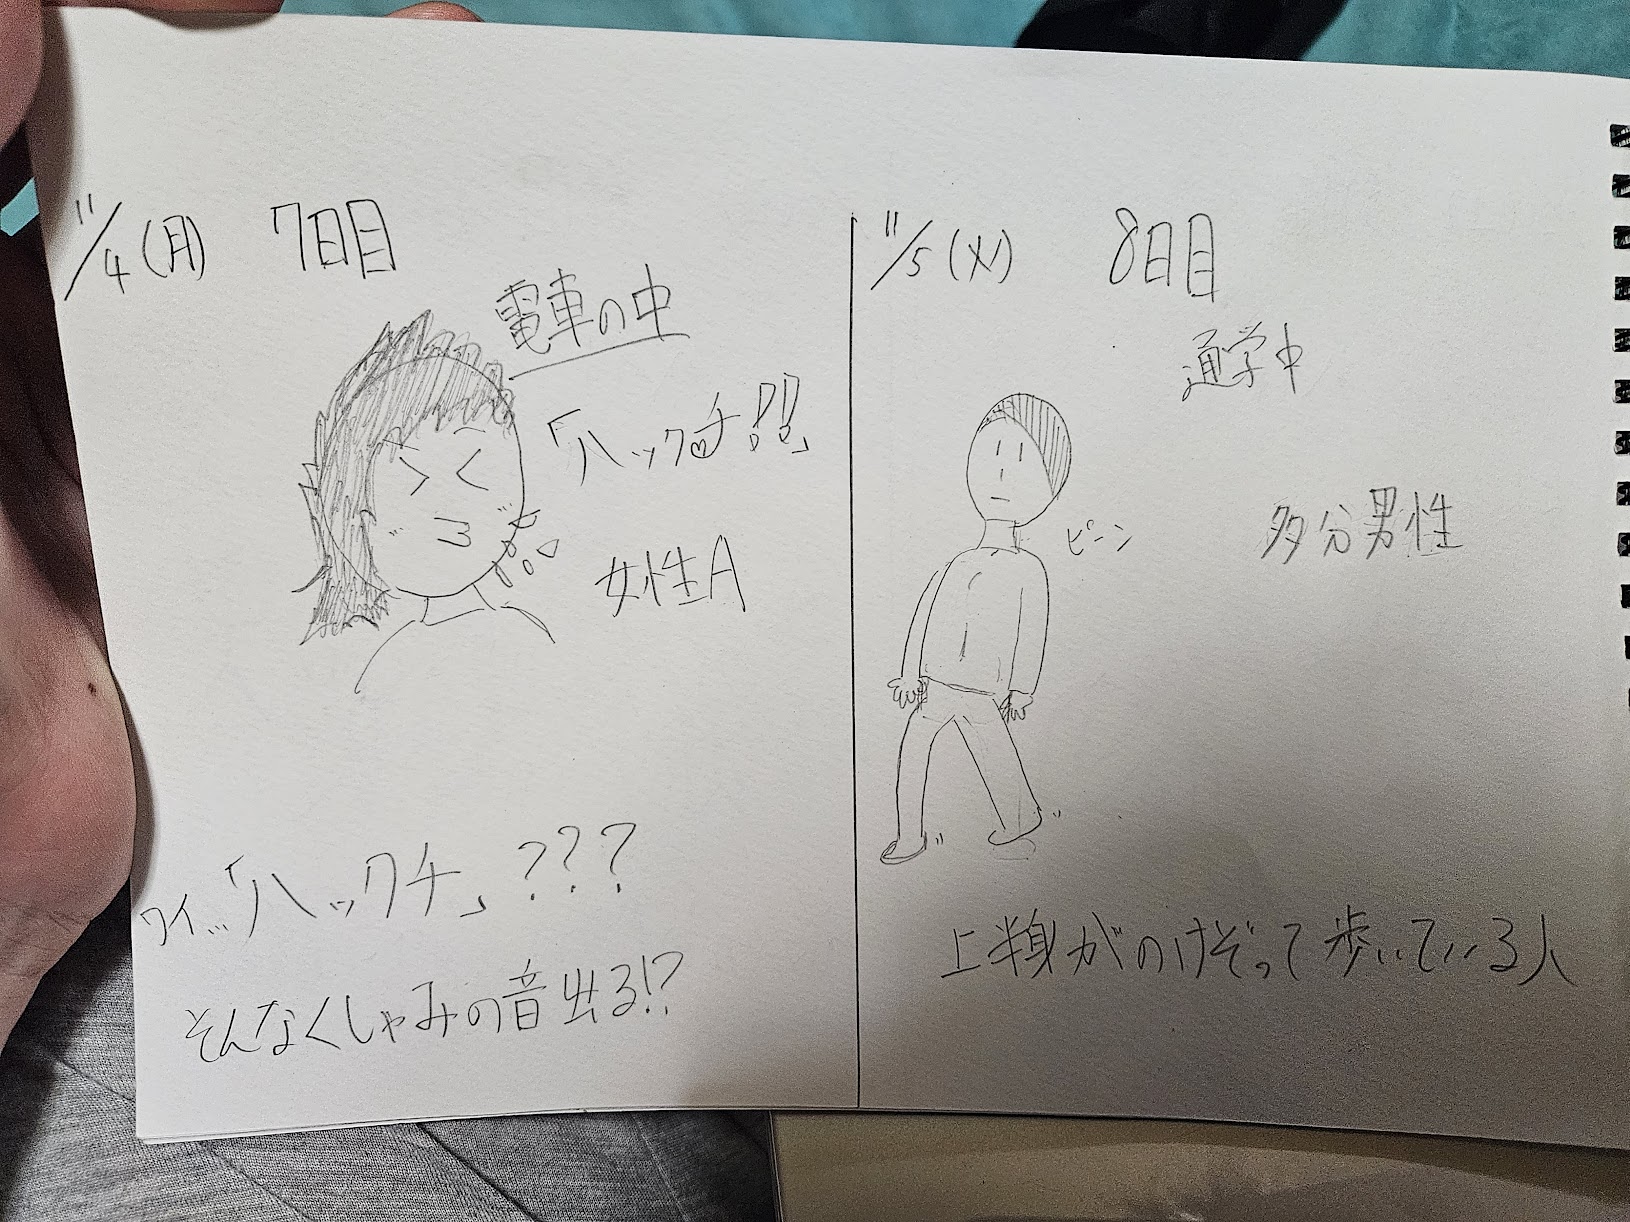 11/4(月) 7日目
電車の中
「ハックチ!!」
女性A
ワイ…「ハックチ」???
そんなくしゃみの音出る!?
11/5(火) 8日目
通学中
ピーン
多分男性
上半身がのけぞって歩いている人